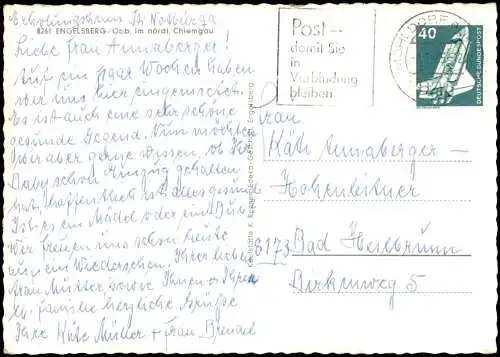 Erholungsheim St. Notburga
8261 ENGELSBERG/Obb. im nördl. Chiemgau
Liebe Frau Annaberger!
Auf ein paar Wochen haben
wir uns hier eingemietet.
Es ist auch eine sehr schöne
gesunde Gegend. Nun möchten
wir aber gerne wissen, ob Ihr
Baby schon Einzug gehalten
hat, hoffentlich ist alles gesund
Ist es ein Mädel oder ein Bub.
Wir freuen uns schon heute
auf ein Wiedersehen. Ihrer lieben
Frau Mutter sowie Ihnen u. Ihrer
lg. Familie herzliche Grüße
Ihre Käte Müller + Frau
Post –
damit Sie
in
Verbindung
bleiben
MÜHLDORF
40
DEUTSCHE BUNDESPOST
Frau
Käth Annaberger –
Hohenleitner
8173 Bad Heilbrunn
Birkenweg 5